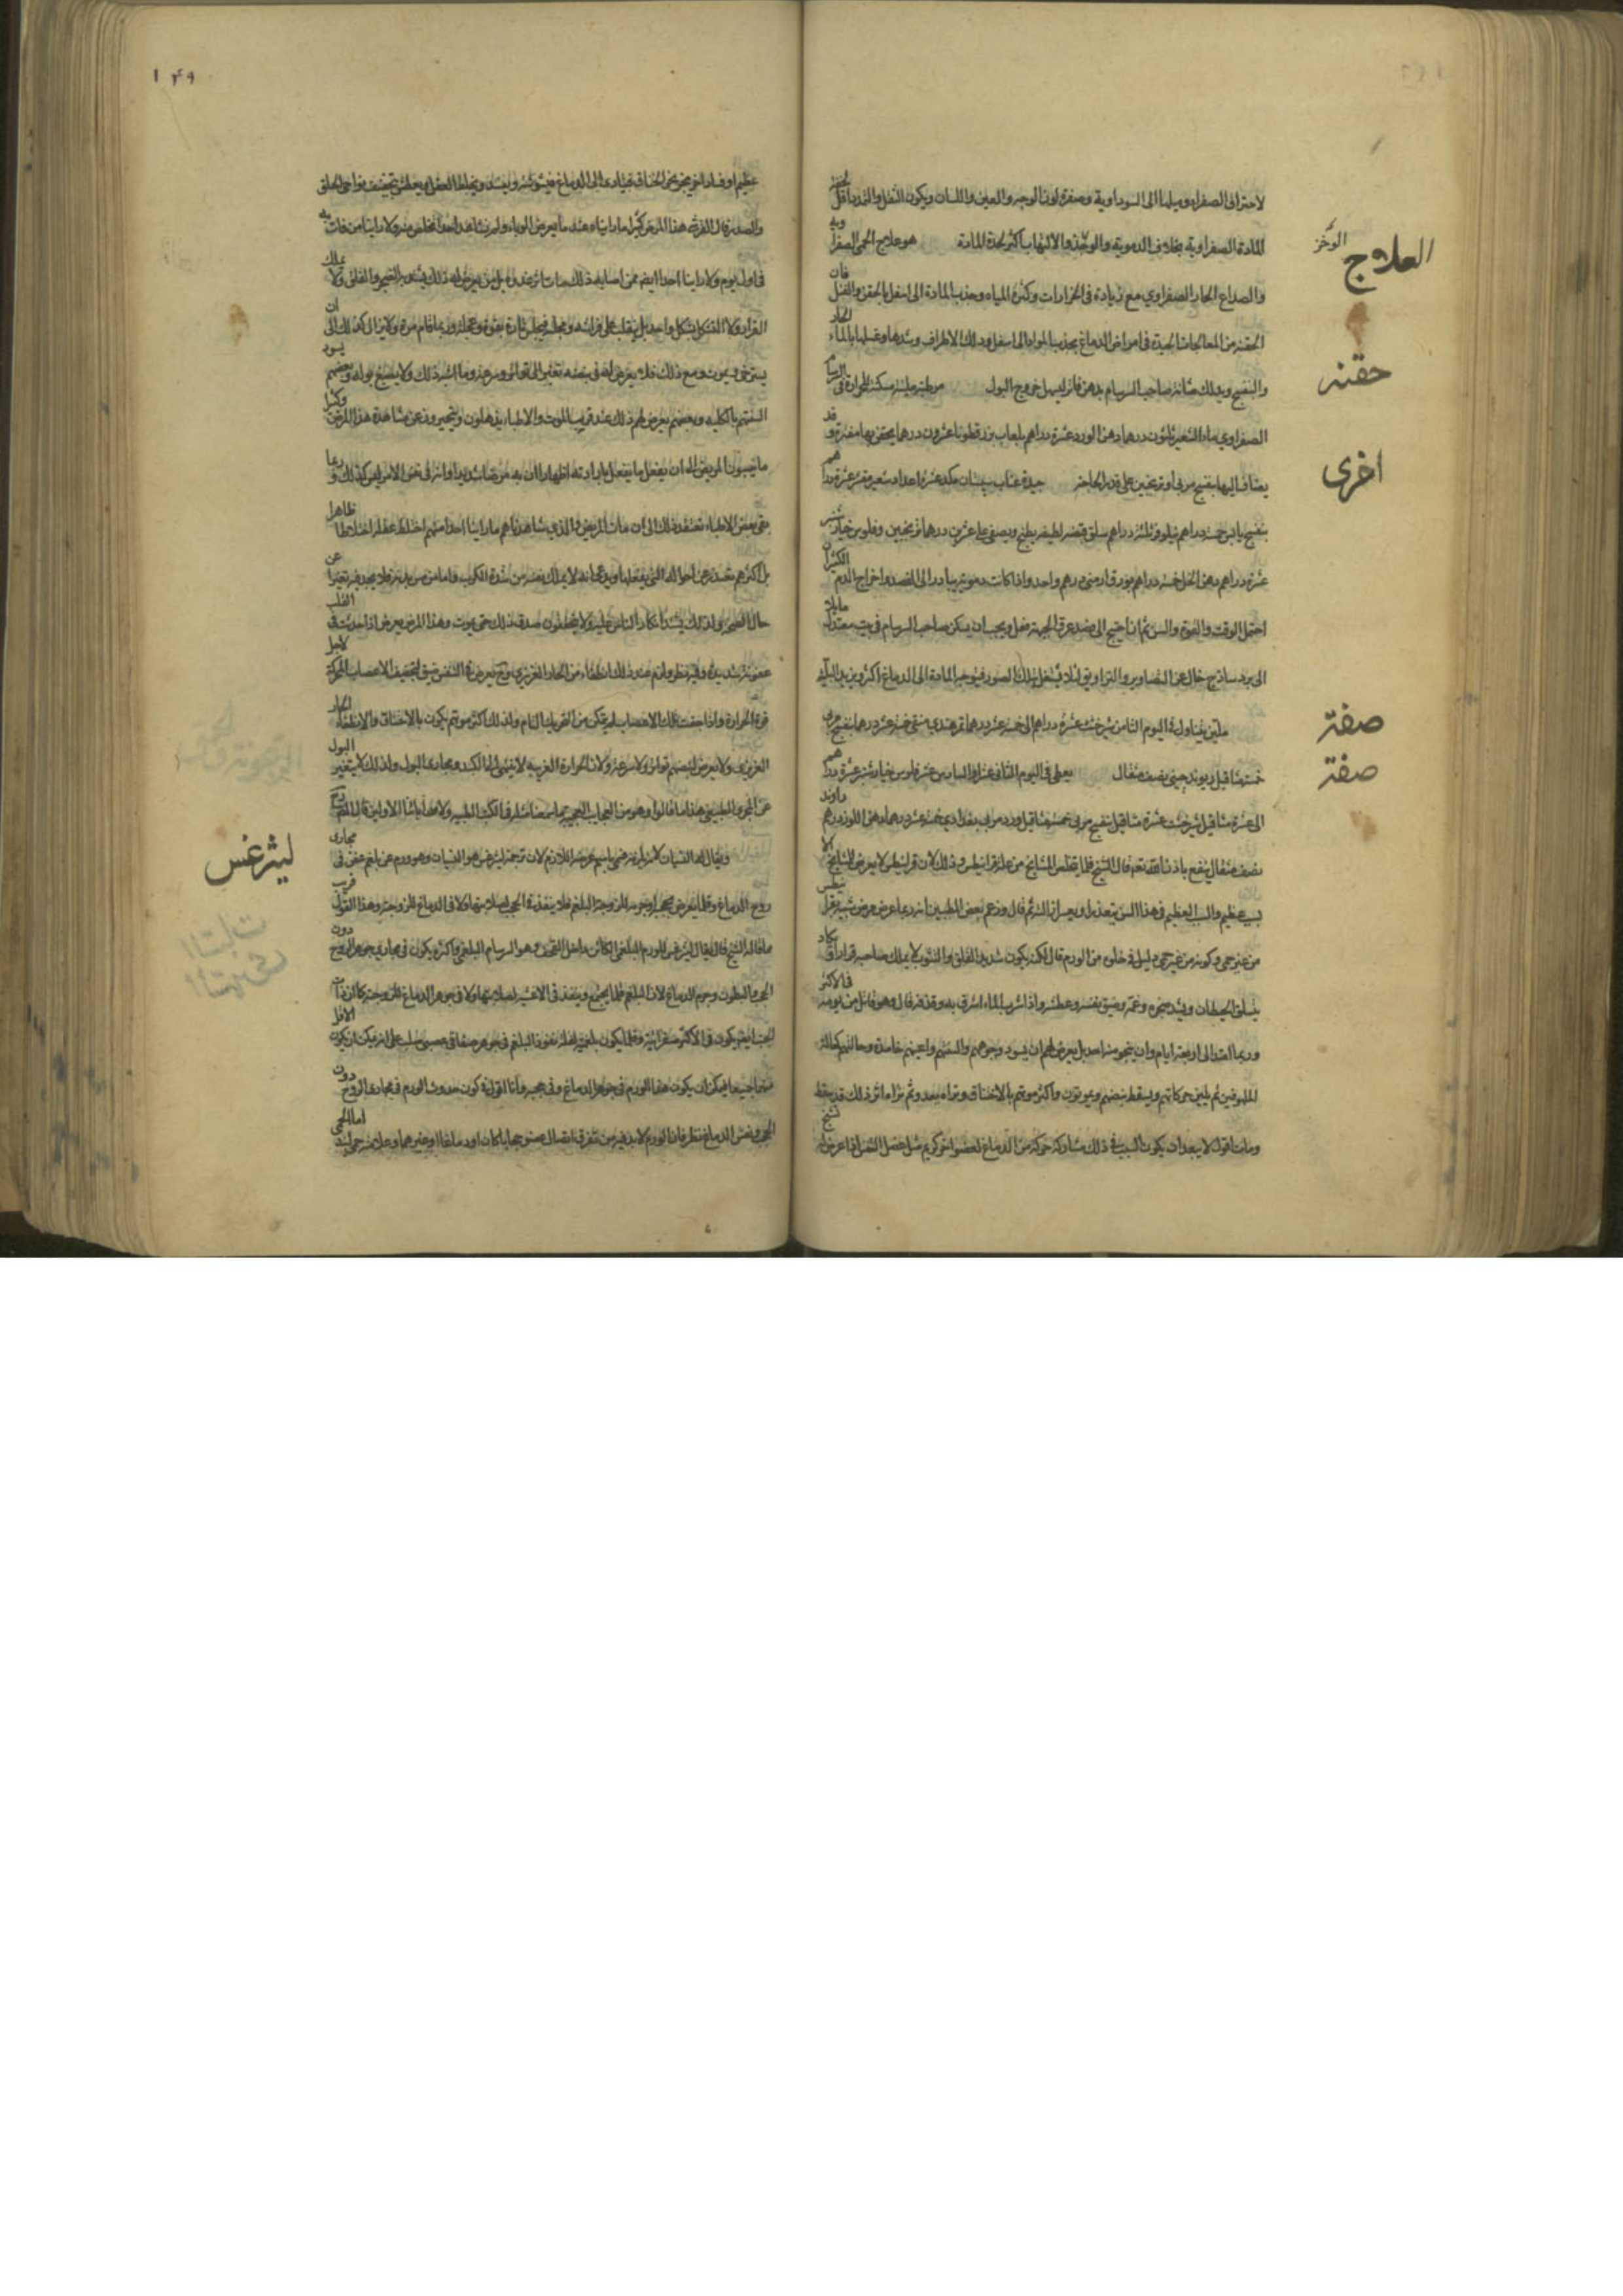 لاحتراق الصفراء وميلها الى السوداوية وصفرة لون الوجه والعين واللسان ويكون الثقل والتمدد اقل لخفة
المادة الصفراوية بخلاف الدموية والوخز والالتهاب اكثر لحدة المادة هو علاج الحمى الصفراوية
الوخز
العلاج
والصداع الحار الصفراوي مع زيادة في وكثرة المياه وجذب المادة الى اسفل بالحقن والفتل فان
الحقنة من المعالجات الجيدة في امراض الدماغ بجذبها المواد الى اسفل ودلك الاطراف وشدها وغسلها بالماء الحار
والبنفسج ويدلك مثانة صاحب السرسام بدهن فاتر ليسهل خروج البول مرطبة ملينة مسكنة للحرارة في السرسام
حقنة
الصفراوي ماء الشعير ثلثون درهما دهن الورد عشرة دراهم لعاب بزر قطونا عشرون درهما يحقن بها مفترة وقد
يضاف اليها بنفسج مربى او ترنجبين على قدر الحاجة جيدة عناب سپستان من كل عشرة اعداد شعير مقشر عشرة دراهم
اخرى
بنفسج يابس خمسة دراهم نيلوفر ثلثة دراهم سلق قبضة لطيفة يطبخ ويصفى على عشرين درهما ترنجبين وفلوس خيار شنبر
عشرة دراهم دهن الخل خمسة دراهم بورق ارمني درهم واحد واذا كانت دموية يبادر الى الفصد واخراج الدم الكثير ان
احتمل الوقت والقوة والسن ثم ان احتيج الى فصد عرق الجبهة فعل ويجب ان يسكن صاحب السرسام في بيت معتدل مايلا
الى برد ساذج خال عن التصاوير والتزاويق لئلا يشتغل بتلك الصور فيتوجه المادة الى الدماغ اكثر ويزيد البلية
ملين يتناول في اليوم الثامن شيرخشت عشرة دراهم الى خمسة عشر درهما تمرهندي منقى خمسة عشر درهما بنفسج مربى
صفة
خمسة مثاقيل ريوند چيني نصف مثقال يعطى في اليوم الثاني عشر او السادس عشر فلوس خيار شنبر عشرة دراهم
صفة
الى عشرة مثاقيل شيرخشت عشرة مثاقيل بنفسج مربى خمسة مثاقيل ورد مربى بغدادي خمسة عشر درهما دهن اللوز درهم راوند
نصف مثقال ينفع باذن الله تعالى قال الشيخ قلما يتخلص المشايخ من علة قرانيطس وذلك لان قرانيطس لا يعرض للمشايخ الا
لسبب عظيم والسبب العظيم في هذا السن يتعذر او يعسر ازالته ثم قال وزعم بعض المتطببين انه ربما عرض مرض شبيه بقرانيطس
من غير حمى وكونه من غير حمى دليل في خلوه من الورم قال لكن يكون شديد القلق والتوثب لا يملك صاحبه قرارا وكاد
يتسلق الحيطان ويشتد ضجره وغمه وضيق نفسه وعطشه واذا شرب الماء شرق به وقذفه قال وهو قاتل من يومه في الاكثر
وربما امتد الى اربعة ايام وان ينجو منه احد بل يعرض لهم ان يسود وجوههم والسنتهم واعينهم جامدة وحالتهم كحالة
الملهوفين ثم يلين حركاتهم ويسقط نبضهم ويموتون واكثر موتهم بالاختناق وتراه يعدو ثم تراه اثر ذلك قد سقط
ومات اقول لا يبعد ان يكون السبب في ذلك مشاركة حركة من الدماغ لعضو اخر كريم مثل عضل التنفس اذا عرض له تشنج
١٤٩
عظيم او فساد المجرى الخناق فيتادى الى الدماغ فيشوشه ويفسده ويختلط العقل او يعطش تجفيف نواحي الحلق
والصدر قال القرشي هذا المرض كثيرا ما رايناه عند ما يعرض الوباء ولم نشاهد احدا تخلص منه ولا راينا من مات به
في اول يوم ولا راينا احدا ايضا ممن اصابه ذلك مات من غده بل من يعرض له ذلك يشتد به الضجر والقلق ولا يملك
القرار ولا الشكل بشكل واحد بل يتقلب على فراشه فيجلس تارة بقوة وعجلة وربما قام مرة ولا يزال كذلك الى ان
يسترخي ويموت ومع ذلك فلا يعرض له في نبضه تغير الى تواتر وسرعة وما اشبه ذلك ولا ينصبغ بوله وبعضهم يسود
السنتهم بالكلية وبعضهم يعرض لهم ذلك عند قرب الموت والاطباء يذهلون ويتحيرون عن مشاهدة هذا المرض وكثيرا
ما ينسبون المريض الى ان يفعل ما يفعل بارادته اظهارا ان به مرضا شديدا وانه في نفس الامر ليس كذلك وربما
بقي بعض الاطباء معتقدا ذلك الى ان مات المريض والذي شاهدناهم ما راينا احدا منهم اختلط عقله اختلاطا ظاهرا
بل اكثرهم يعتذر عن احواله التي يفعلها ويدعي انه لا يملك نفسه من شدة الكرب واما من بدنه فلا يجد فيه تغيرا عن
حال الصحة ولذلك يشتد انكار الناس عليه ولا يتحققون صدقه ذلك حتى يموت وهذا المرض يعرض اذا حدثت في القلب
عفونة شديدة وفيه نظر وانه عند ذلك انطفاء من الحار الغريزي وح يعرض في التنفس ضيق لتجفيف الاعصاب المحركة لاجل
قوة الحرارة واذا جفت تلك الاعصاب لم يتمكن من التحريك التام ولذلك اكثر موتهم يكون بالاختناق والانطفاء الحار
الغريزي ولا يعرض لنبضهم تواتر ولا سرعة ولان الحرارة الغريبة لا تنتهي الى الكبد ومجاري البول ولذلك لا يتغير البول
عن المجرى الطبيعي هذا ما قالوا وهو من العجايب العجيبة ما سمعنا مثله في الكتب الطبية ولا من ابائنا الاولين قال المصنف
ويقال له النسيان لانه لازم له فسمي باسم عرضه اللازم لان ترجمة ليثرغس هو النسيان وهو ورم عن بلغم عفن في مجاري
ليثرغس
روح الدماغ وقلما يعرض في حجبه او جرمه للزوجة البلغم فلا ينفذ في الحجب لصلابتها ولا في الدماغ للزوجته وهذا القول قريب
ما قاله الشيخ قال يقال ليثرغس للورم البلغمي الكائن داخل القحف وهو السرسام البلغمي واكثره يكون في مجاري جوهر الروح دون
الحجب والبطون وجرم الدماغ لان البلغم قلما يجتمع وينفذ في الاغشية لصلابتها ولا في جوهر الدماغ للزوجته كما ان ذات
الجنب ايضا يكون في الاكثر صفراوية وقلما يكون بلغمية لقلة نفوذ البلغم في جوهر صفاقي عصبي صلب على انه يمكن ان يكون الاقل
منهما جميعا فيمكن ان يكون هذا الورم في جوهر الدماغ وفي حجبه واما القول في كون حدوث الورم في مجاري الروح دون
الحجب ونفس الدماغ نظر فان الورم لا بد فيه من تفرق اتصال عضو حجابا كان او دماغا او غيرهما وعلامته حمى لينة اما الحمى